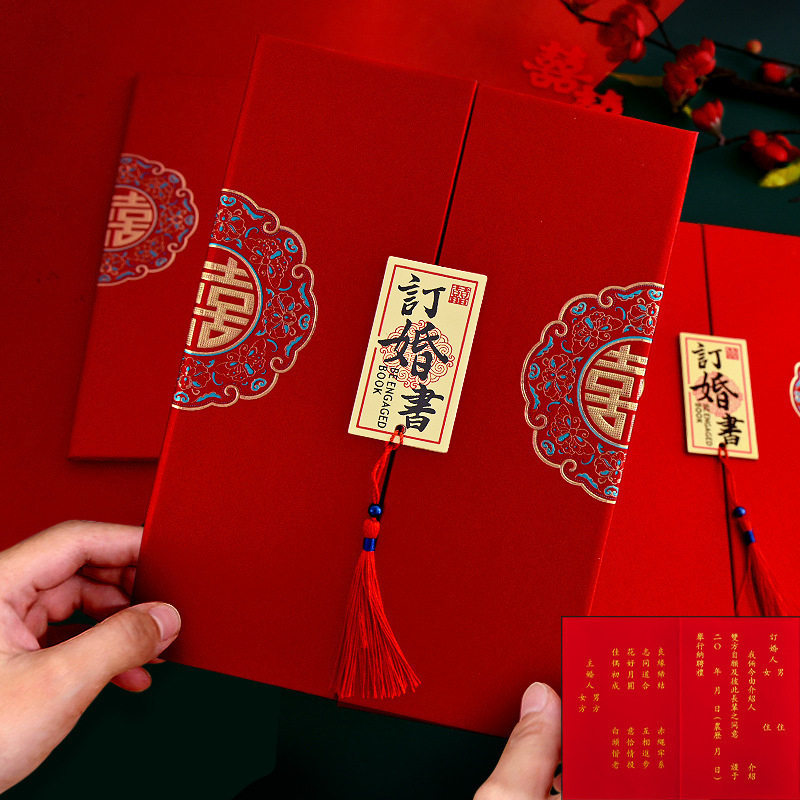 囍
訂婚書
BE ENGAGED
BOOK
囍
囍
囍
囍
訂婚書
BE ENGAGED
BOOK
訂婚人 男 住
女 住
我倆今由介紹人 介紹
雙方自願及彼此長輩之同意 謹于
二〇 年 月 日(農歷 月 日)
舉行納聘禮
良緣締結 赤繩牢系
志同道合 互相進步
花好月圓 意恰情投
佳偶初成 白頭偕老
主婚人 男方
女方